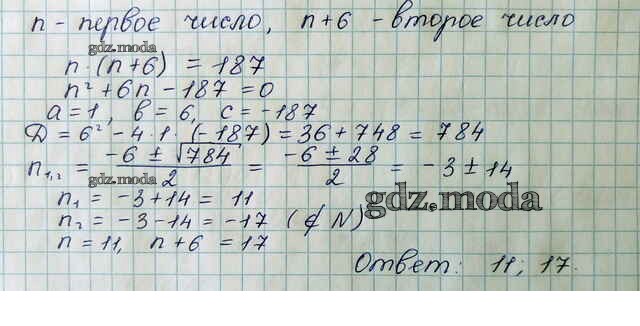 n - первое число, n+6 - второе число
gdz.moda
n · (n+6) = 187
n² + 6n - 187 = 0
a = 1, b = 6, c = -187
gdz.moda
D = 6² - 4 · 1 · (-187) = 36 + 748 = 784
n₁,₂ = (-6 ± √784)/2 = (-6 ± 28)/2 = -3 ± 14
gdz.moda
gdz.moda
n₁ = -3 + 14 = 11
n₂ = -3 - 14 = -17 (∉ N)
n = 11, n+6 = 17
Ответ: 11; 17.